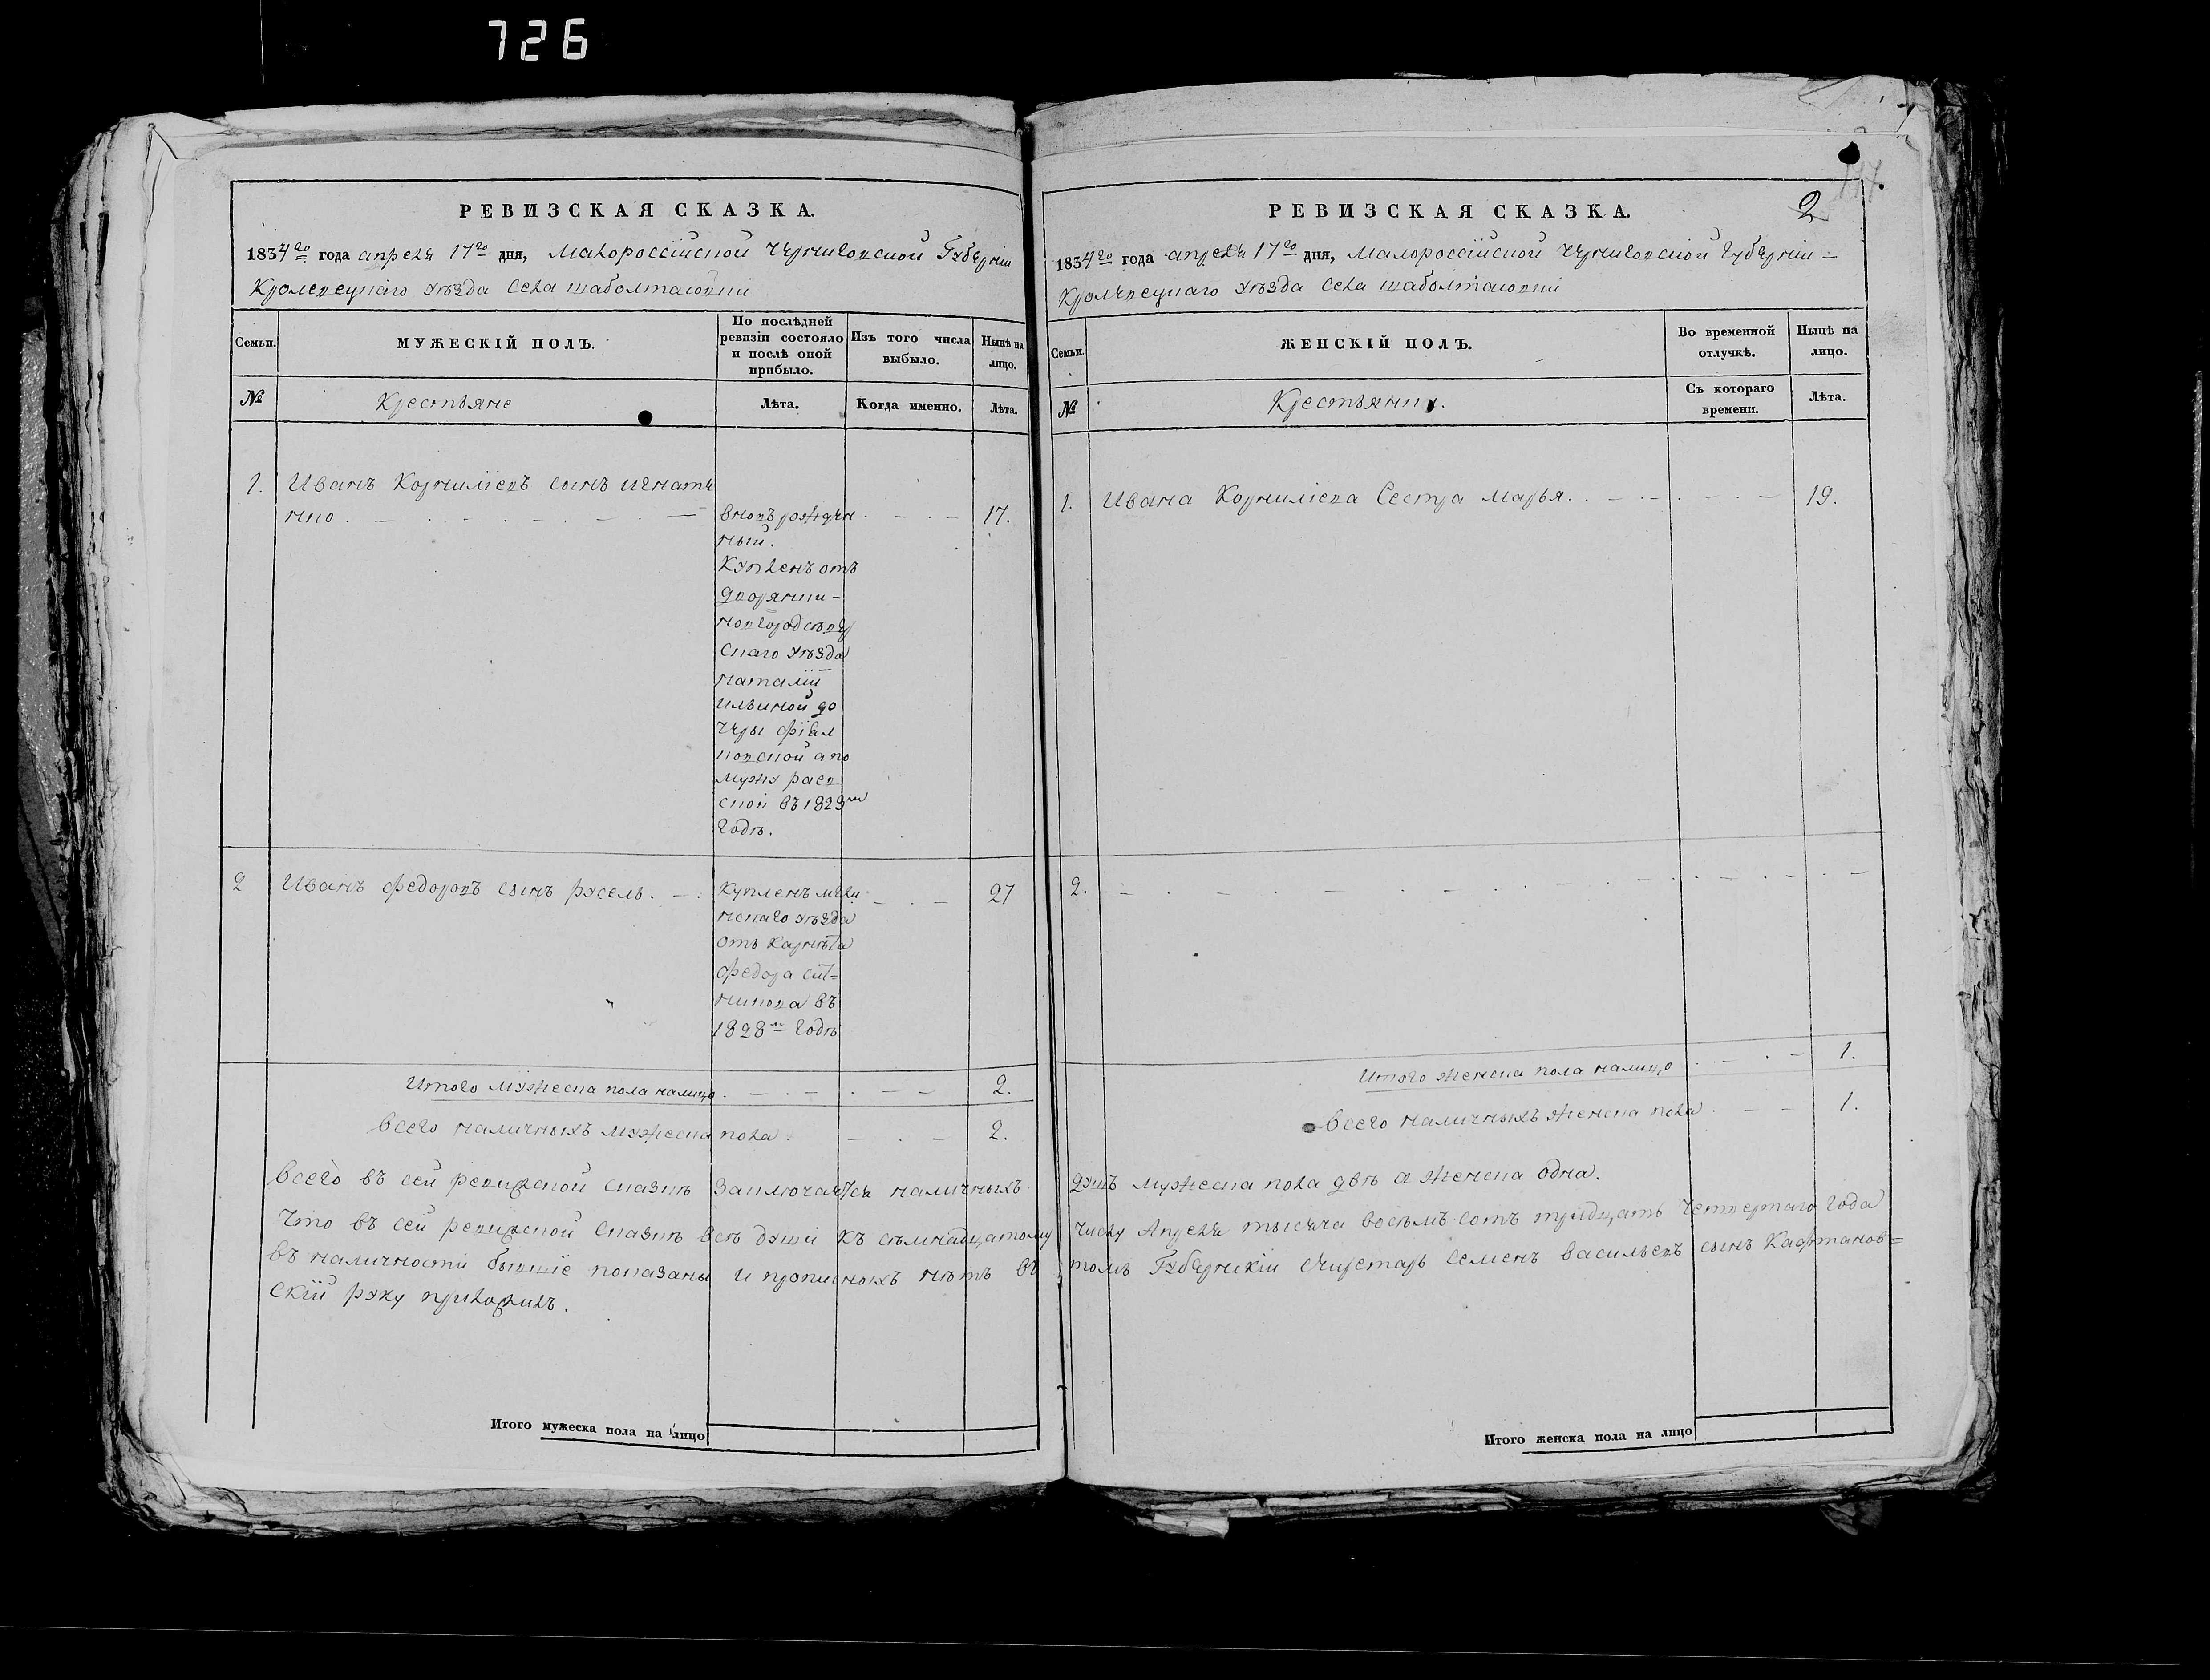 726
РЕВИЗСКАЯ СКАЗКА.
1834го года апреля 17го дня, Малороссійской Черниговской Губерніи
Кролевецкаго уѣзда Села шаболтасовки
Семьи.
МУЖЕСКІЙ ПОЛЪ.
По послѣдней ревизіи состояло и послѣ оной прибыло.
Изъ того числа выбыло.
Нынѣ на лицо.
№
Крестьяне
Лѣта.
Когда именно.
Лѣта.
1. Иванъ Корниліевъ сынъ игнате
нко . — . — . — 17.
вновъ рожден
ный.
Купленъ отъ
дворянки
новгородсѣвер
скаго уѣзда
наталіи
ильиной до
чери
а по
мужу
въ 1829м
годѣ.
2 Иванъ федоровъ сынъ русель. — . 27
Купленъ
уѣзда
отъ карнѣта
федора
въ
1828м годѣ
Итого мужеска пола налицо . — . — . — — 2.
всего наличныхъ мужеска пола — . — 2.
всего въ сей ревизской сказке заключается наличныхъ
Что въ сей ревизской сказке всѣ души къ семнадцатому
въ наличности бывшіе показаны и прописныхъ нѣтъ въ
скій руку приложилъ.
Итого мужеска пола на лицо
2
РЕВИЗСКАЯ СКАЗКА.
1834го года апреля 17го дня, Малороссійской Черниговской Губерніи
Кролевецкаго уѣзда Села шаболтасовки
Семьи.
ЖЕНСКІЙ ПОЛЪ.
Во временной отлучкѣ.
Нынѣ на лицо.
№
Крестьянки.
Съ котораго времени.
Лѣта.
1. Ивана Корниліева Сестра марья. . — . — . — . — 19.
2. — . — . — . — . — . — . —
Итого женска пола налицо . — . — 1.
всего наличныхъ женска пола . — — 1.
душъ мужеска пола двѣ а женска одна.
числу Апреля тысяча восемъ сотъ тридцать четвертаго года
томъ Губернскій Секретарь Семенъ васильевъ сынъ Кафтанов=
Итого женска пола на лицо